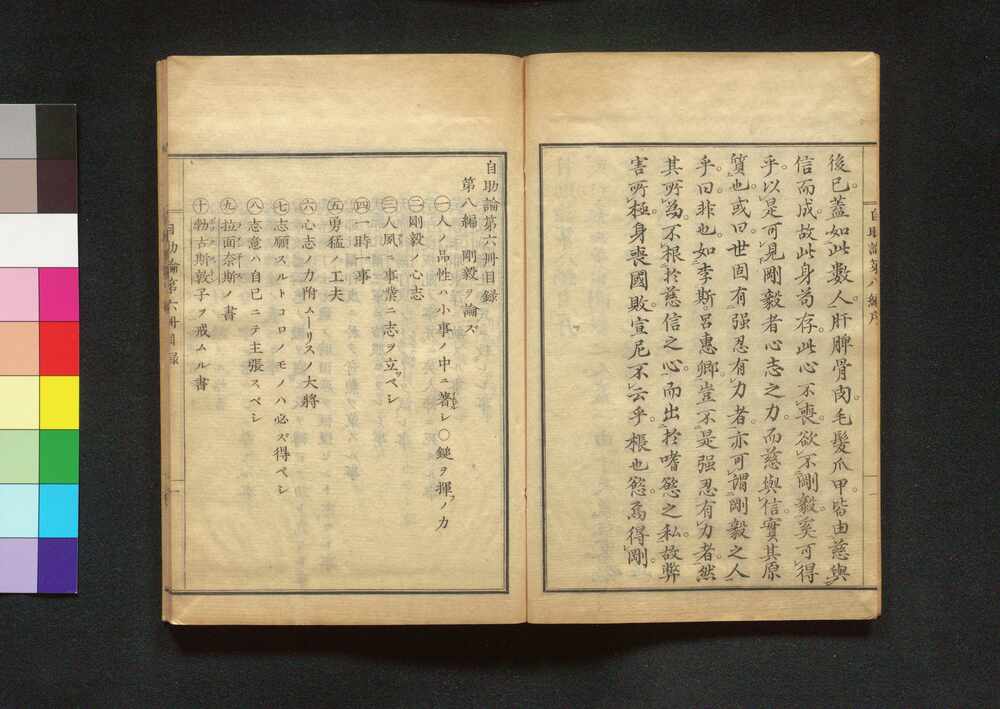 後已蓋如此數人肝脾骨肉毛髮爪甲皆由慈與
信而成故此身苟存此心不喪欲不剛毅奚可得
乎以是可見剛毅者心志之力而慈與信實其原
質也或曰世固有强忍有力者亦可謂剛毅之人
乎曰非也如李斯呂惠卿豈不是强忍有力者然
其所為不根於慈信之心而出於嗜慾之私故弊
害所極身喪國敗宣尼不云乎棖也慾焉得剛
自助論第八編序
自助論第六冊目録
第八編 剛毅ヲ論ズ
㊀人ノ品性ハ小事ノ中ニ著レ〇鎚ヲ揮フノ力
㊁剛毅ノ心志
㊂人風ニ事業ニ志ヲ立ツベシ
㊃一時一事
㊄勇猛ノ工夫
㊅心志ノ力附ムーリスノ大將
㊆志願スルトコロノモノハ必ズ得ベシ
㊇志意ハ自己ニテ主張スベシ
㊈拉面奈斯ノ書
㊉勃古斯敦子ヲ戒ムル書
自助論第六冊目録
一